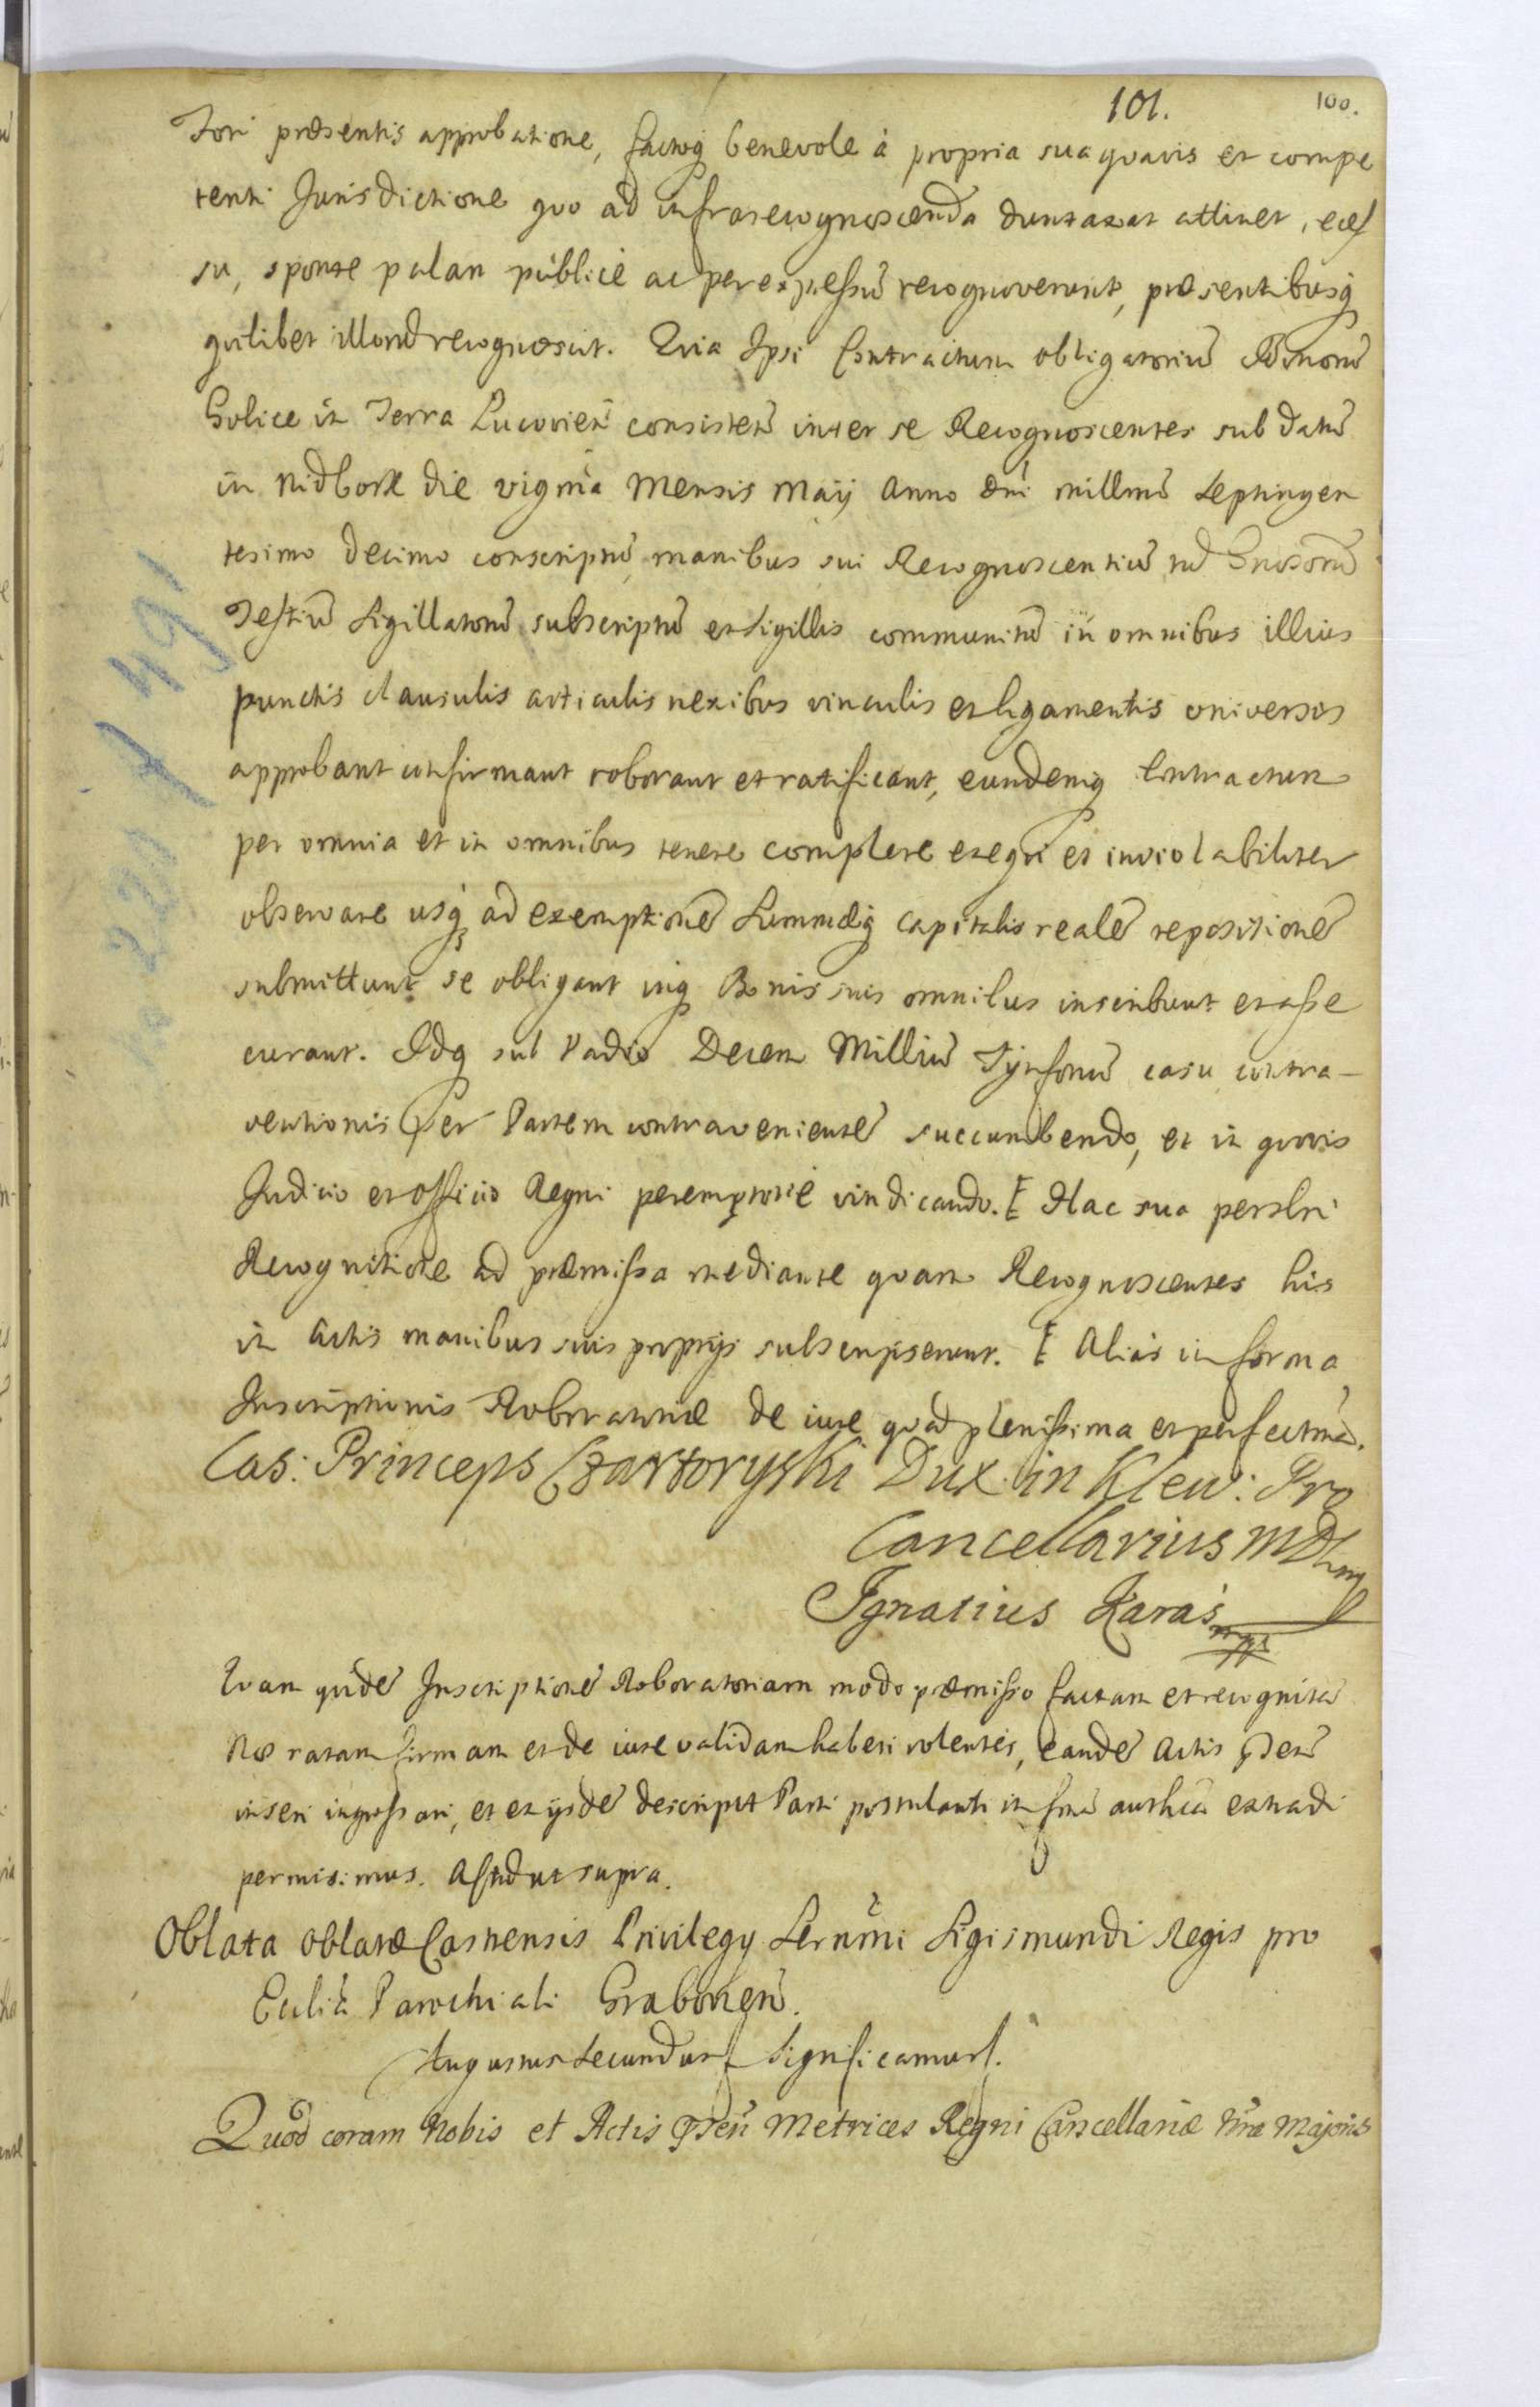 101.
100.
Fori præsentis approbatione, factoq̃ benevole à propria sua quavis et compe
tenti Jurisdictione quo ad infrarecognoscenda duntaxat attinet, reces
su, sponte palam publicè ac per expressũ recognoverunt, præsentibusq̃
quilibet illorũ recognoscit. Quia Ipsi Contractum obligatoriũ Bonorũ
Gulice in Terra Lucovieñ consisteñ inter se Recognoscentes sub datũ
in Nidbork die vigma Mensis Maij Anno Dni millmo Septingen
tesimo decimo conscriptũ, manibus sui Recognoscentiũ tũ Gnosorũ
Testiũ Sigillatorũ subscriptũ et Sigillis communitũ in omnibus illius
punctis clausulis articulis nexibus vinculis et ligamentis universis
approbant confirmant roborant et ratificant, eundemq̃ Contractum
per omnia et in omnibus tenere complere exequi et inviolabiliter
observare usq̃ ad exemptionẽ Summæq̃ capitalis realẽ repositionẽ
submittunt se obligant inq̃ Bonis suis omnibus inscribunt et asse
curant. Idq̃ sub Vadio Decem Milliũ Tynforũ casu contra-
ventionis per Partem contravenientẽ succumbendo, et in quovis
Judicio et officio Regni peremptoriè vindicando. E Hac sua persli
Recognitione ad præmissa mediante quam Recognoscentes his
in Actis manibus suis proprijs subscripserunt. E Aliàs in forma
Inscriptionis Roboratoriæ de iure quàd plenissima et perfectma.
Cas: Princeps Czartoryski Dux in Klew: Pro
Cancellarius MDL mp
Ignatius Karaś mpp
Quam quidẽ Inscriptionẽ Roboratoriam modo præmisso factam et recognitã
Nos ratam firmam et de iure validam haberi volentes, eandẽ Actis pñteñ
inseri ingrossari, et ex ijsdẽ descriptũ Parti postulanti in fma authca extradi
permisimus. Actũ ut supra.
Oblata oblatæ Castrensis Privilegy Sernmi Sigismundi Regis pro
Eccliã Parochiali Graboneñ.
Augustus Secundus Significamus.
Quod coram Nobis et Actis pñteñ Metrices Regni Cancellariæ Nræ Majoris